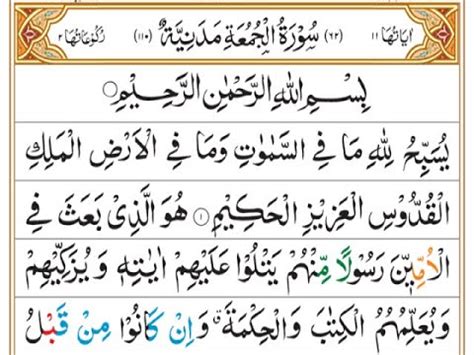 اٰيَاتُهَا ١١ (٦٢) سُوْرَةُ الْجُمُعَةِ مَدَنِيَّةٌ (١١٠) رُكُوْعَاتُهَا ٢
بِسْمِ اللّٰهِ الرَّحْمٰنِ الرَّحِيْمِ
يُسَبِّحُ لِلّٰهِ مَا فِي السَّمٰوٰتِ وَمَا فِي الْاَرْضِ الْمَلِكِ
الْقُدُّوْسِ الْعَزِيْزِ الْحَكِيْمِ ١ هُوَ الَّذِيْ بَعَثَ فِي
الْاُمِّيّٖنَ رَسُوْلًا مِّنْهُمْ يَتْلُوْا عَلَيْهِمْ اٰيٰتِهٖ وَيُزَكِّيْهِمْ
وَيُعَلِّمُهُمُ الْكِتٰبَ وَالْحِكْمَةَ ۗ وَاِنْ كَانُوْا مِنْ قَبْلُ